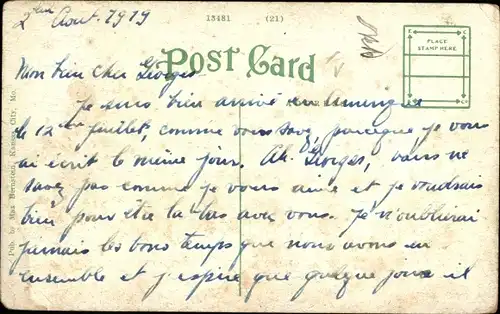 2 Aout. 1919
13481 (21)
Post Card
PLACE
STAMP HERE
Mon bien cher Georges
Je suis bien arrivé en
le 12 Juillet, comme vous savez parceque je vous
ai écrit le même jour. Ah. Georges, vous ne
savez pas comme je vous aime et je voudrais
bien pour être là-bas avec vous. Je n'oublierai
jamais les bons temps que nous avons eu
ensemble et j'espère que quelque jour il
Pub. by Max Bernstein, Kansas City, Mo.